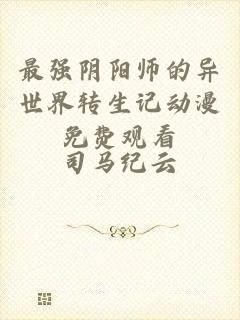 最强阴阳师的异
世界转生记动漫
免费观看
司马纪云